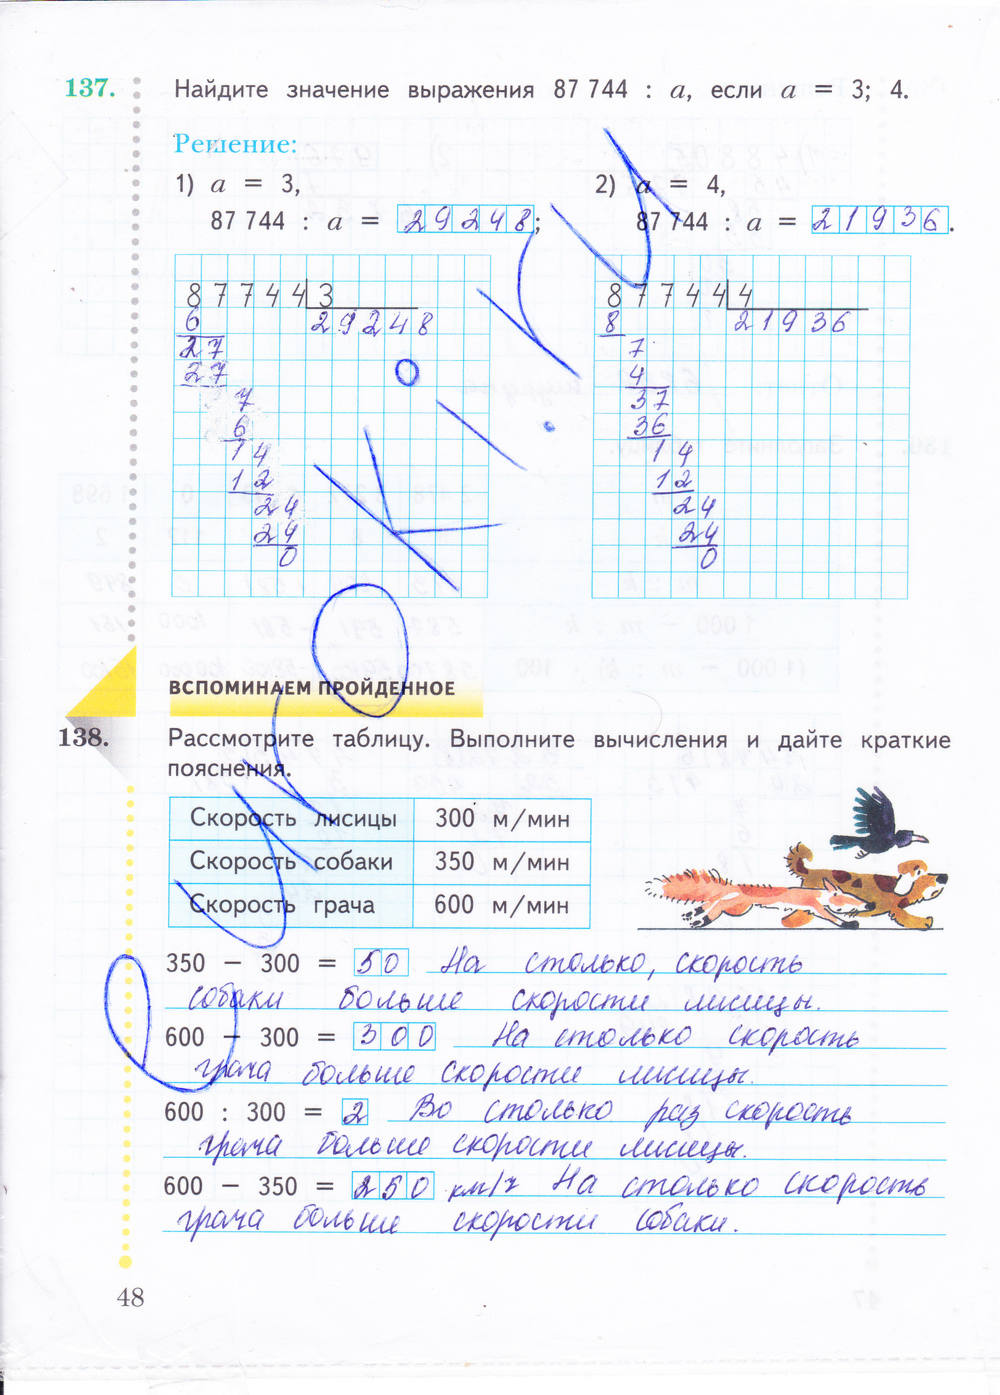 137. Найдите значение выражения 87 744 : a, если a = 3; 4.
Решение:
1) a = 3,
87 744 : a = 29248;
2) a = 4,
87 744 : a = 21936.
87744 3
6 29248
27
27
7
6
14
12
24
24
0
87744 4
8 21936
7
4
37
36
14
12
24
24
0
ВСПОМИНАЕМ ПРОЙДЕННОЕ
138. Рассмотрите таблицу. Выполните вычисления и дайте краткие
пояснения.
Скорость лисицы 300 м/мин
Скорость собаки 350 м/мин
Скорость грача 600 м/мин
350 − 300 = 50 На столько, скорость
собаки больше скорости лисицы.
600 − 300 = 300 На столько скорость
грача больше скорости лисицы.
600 : 300 = 2 Во столько раз скорость
грача больше скорости лисицы.
600 − 350 = 250 км/ч На столько скорость
грача больше скорости собаки.
48
eurokki.ru